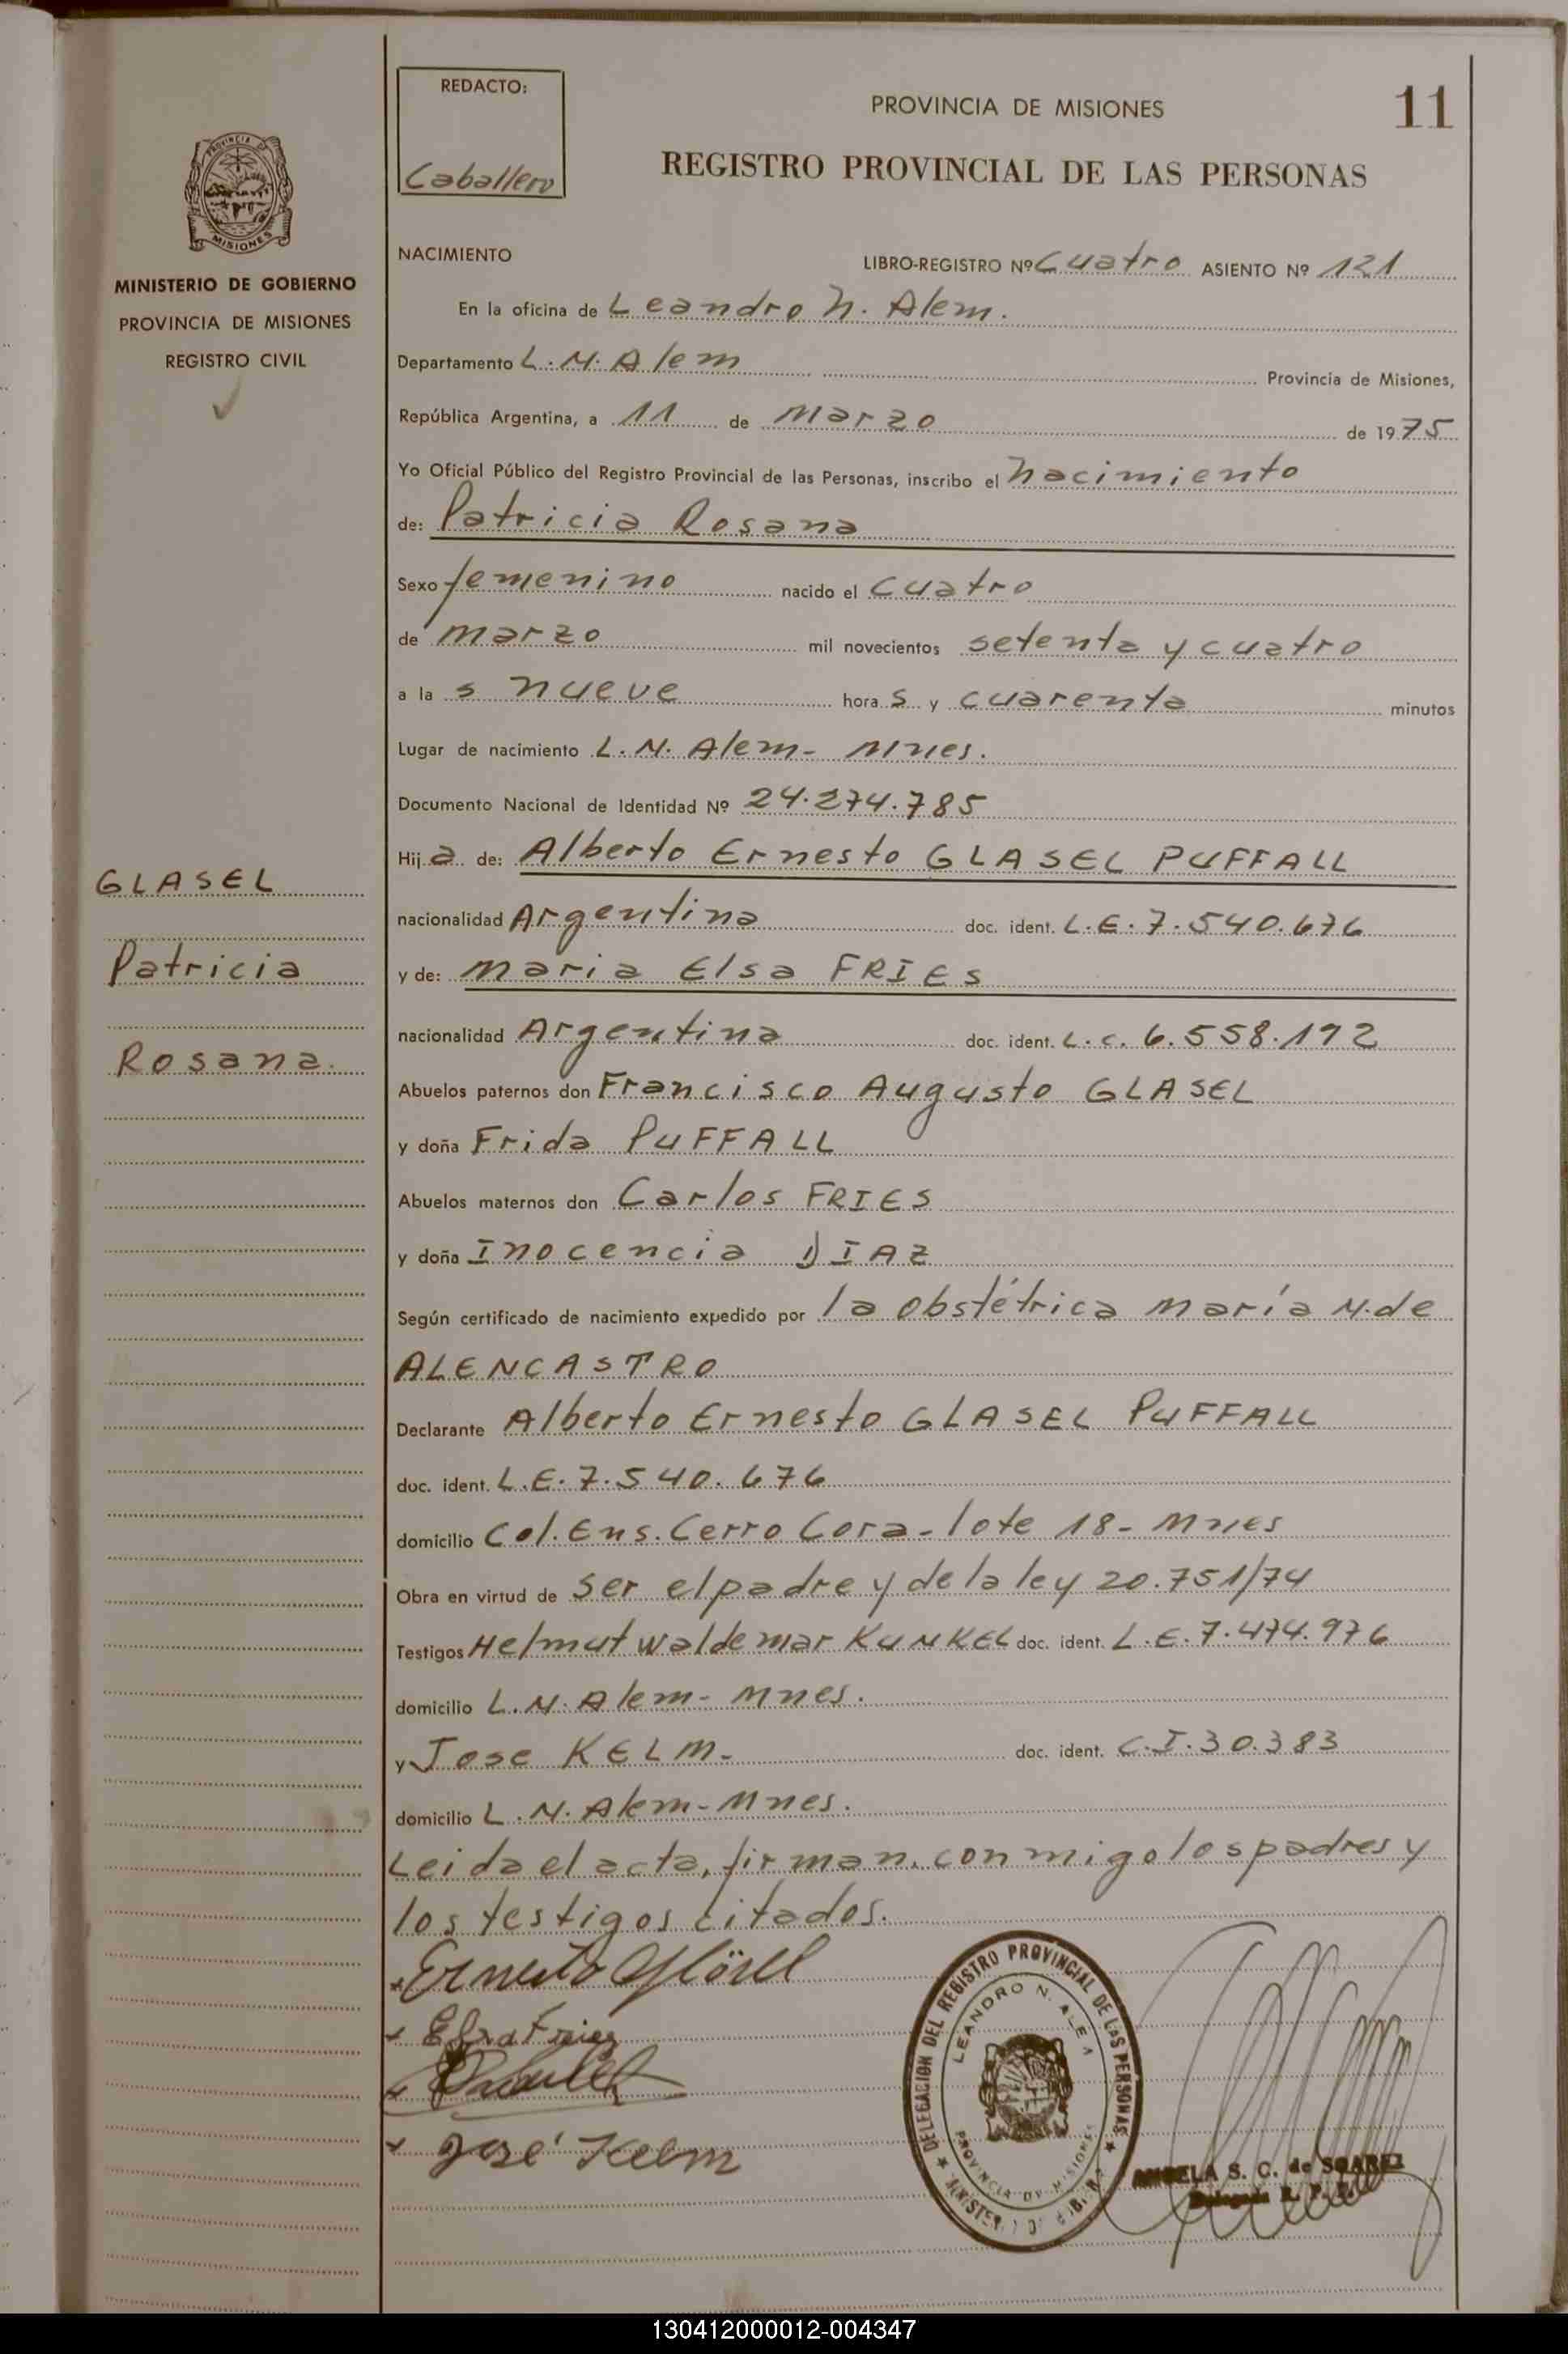 REDACTO:
Caballero
PROVINCIA DE MISIONES
11
REGISTRO PROVINCIAL DE LAS PERSONAS
PROVINCIA DE
MISIONES
MINISTERIO DE GOBIERNO
PROVINCIA DE MISIONES
REGISTRO CIVIL
NACIMIENTO
LIBRO-REGISTRO Nº Cuatro ASIENTO Nº 121
En la oficina de Leandro N. Alem.
Departamento L. N. Alem Provincia de Misiones,
República Argentina, a 11 de Marzo de 1975
Yo Oficial Público del Registro Provincial de las Personas, inscribo el Nacimiento
de: Patricia Rosana
Sexo femenino nacido el cuatro
de marzo mil novecientos setenta y cuatro
a la s nueve hora s y cuarenta minutos
Lugar de nacimiento L. N. Alem - Mnes.
Documento Nacional de Identidad Nº 24.274.785
Hij a de: Alberto Ernesto GLASEL PUFFALL
GLASEL
nacionalidad Argentina doc. ident. L.E. 7.540.676
Patricia
y de: Maria Elsa FRIES
nacionalidad Argentina doc. ident. L.C. 6.558.192
Rosana.
Abuelos paternos don Francisco Augusto GLASEL
y doña Frida PUFFALL
Abuelos maternos don Carlos FRIES
y doña Inocencia DIAZ
Según certificado de nacimiento expedido por la obstétrica María N. de
ALENCASTRO
Declarante Alberto Ernesto GLASEL PUFFALL
doc. ident. L.E. 7.540.676
domicilio Col. Ens. Cerro Cora - lote 18 - Mnes
Obra en virtud de ser el padre y de la ley 20.751/74
Testigos Helmut Waldemar KUNKEL doc. ident. L.E. 7.474.976
domicilio L. N. Alem - Mnes.
y Jose KELM - doc. ident. C.I. 30.383
domicilio L. N. Alem - Mnes.
Leida el acta, firman conmigo los padres y
los testigos citados.
Ernesto Gläsel
Elsa Fries
José Kelm
DELEGACION DEL REGISTRO PROVINCIAL DE LAS PERSONAS
LEANDRO N. ALEM
PROVINCIA DE MISIONES
ANGELA S. C. de SUAREZ
Delegada R. P. P.
130412000012-004347